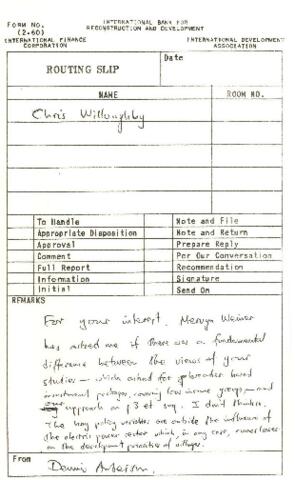 FORM NO.
(2-60)
INTERNATIONAL BANK FOR
RECONSTRUCTION AND DEVELOPMENT
INTERNATIONAL FINANCE
CORPORATION
INTERNATIONAL DEVELOPMENT
ASSOCIATION
ROUTING SLIP
Date
NAME
ROOM NO.
Chris Willoughby
To Handle
Note and File
Appropriate Disposition
Note and Return
Approval
Prepare Reply
Comment
Per Our Conversation
Full Report
Recommendation
Information
Signature
Initial
Send On
REMARKS
For your interest. Mervyn Weiner
has asked me if there was a fundamental
difference between the views of your
studies - which asked for broader based
investment packages, covering low income groups - and
our approach on p3 et seq. I don't think so.
The key policy variables are outside the influence of
the electric power sector which, in any case,
on the development priorities of villages.
From
Dennis Anderson.